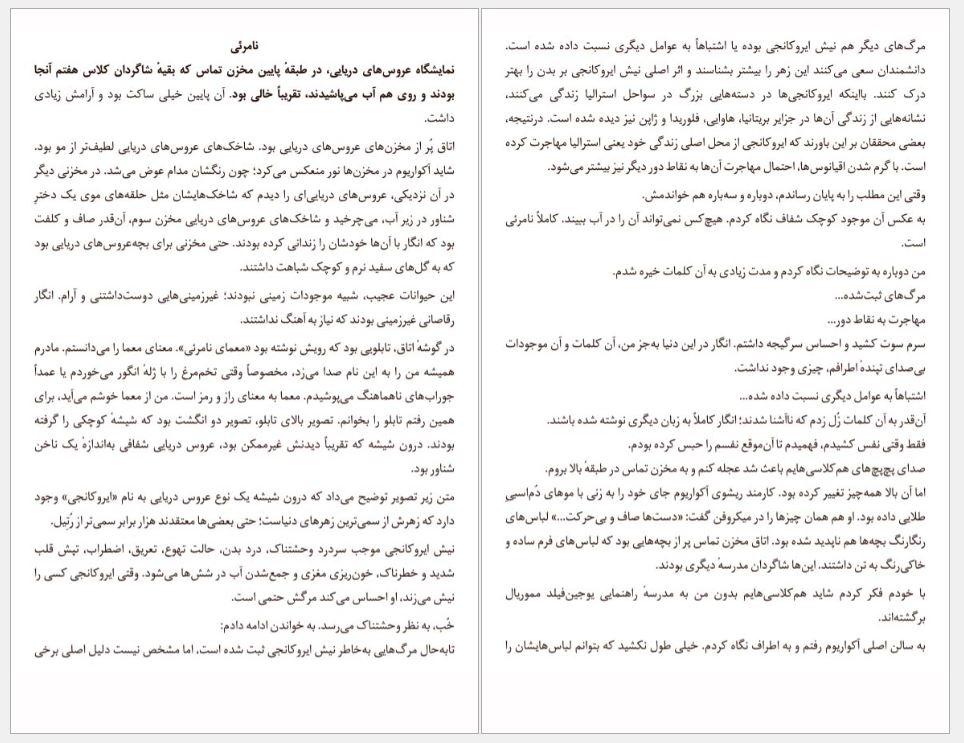 نامرئی
نمایشگاه عروس‌های دریایی، در طبقهٔ پایین مخزن تماس که بقیهٔ شاگردان کلاس هفتم آنجا
بودند و روی هم آب می‌پاشیدند، تقریباً خالی بود. آن پایین خیلی ساکت بود و آرامش زیادی
داشت.
اتاق پُر از مخزن‌های عروس‌های دریایی بود. شاخک‌های عروس‌های دریایی لطیف‌تر از مو بود.
شاید آکواریوم در مخزن‌ها نور منعکس می‌کرد؛ چون رنگشان مدام عوض می‌شد. در مخزنی دیگر
در آن نزدیکی، عروس‌های دریایی‌ای را دیدم که شاخک‌هایشان مثل حلقه‌های موی یک دخترِ
شناور در زیر آب، می‌چرخید و شاخک‌های عروس‌های دریایی مخزن سوم، آن‌قدر صاف و کلفت
بود که انگار با آن‌ها خودشان را زندانی کرده بودند. حتی مخزنی برای بچه‌عروس‌های دریایی بود
که به گل‌های سفید نرم و کوچک شباهت داشتند.
این حیوانات عجیب، شبیه موجودات زمینی نبودند؛ غیرزمینی‌هایی دوست‌داشتنی و آرام. انگار
رقاصانی غیرزمینی بودند که نیاز به آهنگ نداشتند.
در گوشهٔ اتاق، تابلویی بود که رویش نوشته بود «معمای نامرئی». معنای معما را می‌دانستم. مادرم
همیشه من را به این نام صدا می‌زد، مخصوصاً وقتی تخم‌مرغ را با ژلهٔ انگور می‌خوردم یا عمداً
جوراب‌های ناهماهنگ می‌پوشیدم. معما به معنای راز و رمز است. من از معما خوشم می‌آید، برای
همین رفتم تابلو را بخوانم. تصویر بالای تابلو، تصویر دو انگشت بود که شیشهٔ کوچکی را گرفته
بودند. درون شیشه که تقریباً دیدنش غیرممکن بود، عروس دریایی شفافی به‌اندازهٔ یک ناخن
شناور بود.
متن زیر تصویر توضیح می‌داد که درون شیشه یک نوع عروس دریایی به نام «ایروکانجی» وجود
دارد که زهرش از سمی‌ترین زهرهای دنیاست؛ حتی بعضی‌ها معتقدند هزار برابر سمی‌تر از رُتِیل.
نیش ایروکانجی موجب سردرد وحشتناک، درد بدن، حالت تهوع، تعریق، اضطراب، تپش قلب
شدید و خطرناک، خون‌ریزی مغزی و جمع‌شدن آب در شش‌ها می‌شود. وقتی ایروکانجی کسی را
نیش می‌زند، او احساس می‌کند مرگش حتمی است.
خُب، به نظر وحشتناک می‌رسد. به خواندن ادامه دادم:
تابه‌حال مرگ‌هایی به‌خاطر نیش ایروکانجی ثبت شده است، اما مشخص نیست دلیل اصلی برخی
مرگ‌های دیگر هم نیش ایروکانجی بوده یا اشتباهاً به عوامل دیگری نسبت داده شده است.
دانشمندان سعی می‌کنند این زهر را بیشتر بشناسند و اثر اصلی نیش ایروکانجی بر بدن را بهتر
درک کنند. بااینکه ایروکانجی‌ها در دسته‌هایی بزرگ در سواحل استرالیا زندگی می‌کنند،
نشانه‌هایی از زندگی آن‌ها در جزایر بریتانیا، هاوایی، فلوریدا و ژاپن نیز دیده شده است. درنتیجه،
بعضی محققان بر این باورند که ایروکانجی از محل اصلی زندگی خود یعنی استرالیا مهاجرت کرده
است. با گرم شدن اقیانوس‌ها، احتمال مهاجرت آن‌ها به نقاط دور دیگر نیز بیشتر می‌شود.
وقتی این مطلب را به پایان رساندم، دوباره و سه‌باره هم خواندمش.
به عکس آن موجود کوچک شفاف نگاه کردم. هیچ‌کس نمی‌تواند آن را در آب ببیند. کاملاً نامرئی
است.
من دوباره به توضیحات نگاه کردم و مدت زیادی به آن کلمات خیره شدم.
مرگ‌های ثبت‌شده...
مهاجرت به نقاط دور...
سرم سوت کشید و احساس سرگیجه داشتم. انگار در این دنیا به‌جز من، آن کلمات و آن موجودات
بی‌صدای تپندهٔ اطرافم، چیزی وجود نداشت.
اشتباهاً به عوامل دیگری نسبت داده شده...
آن‌قدر به آن کلمات زُل زدم که ناآشنا شدند؛ انگار کاملاً به زبان دیگری نوشته شده باشند.
فقط وقتی نفس کشیدم، فهمیدم تا آن‌موقع نفسم را حبس کرده بودم.
صدای پچ‌پچ‌های هم‌کلاسی‌هایم باعث شد عجله کنم و به مخزن تماس در طبقهٔ بالا بروم.
اما آن بالا همه‌چیز تغییر کرده بود. کارمند ریشوی آکواریوم جای خود را به زنی با موهای دُم‌اسبیِ
طلایی داده بود. او هم همان چیزها را در میکروفن گفت: «دست‌ها صاف و بی‌حرکت...» لباس‌های
رنگارنگ بچه‌ها هم ناپدید شده بود. اتاق مخزن تماس پر از بچه‌هایی بود که لباس‌های فرم ساده و
خاکی‌رنگ به تن داشتند. این‌ها شاگردان مدرسهٔ دیگری بودند.
با خودم فکر کردم شاید هم‌کلاسی‌هایم بدون من به مدرسهٔ راهنمایی یوجین‌فیلد مموریال
برگشته‌اند.
به سالن اصلی آکواریوم رفتم و به اطراف نگاه کردم. خیلی طول نکشید که بتوانم لباس‌هایشان را